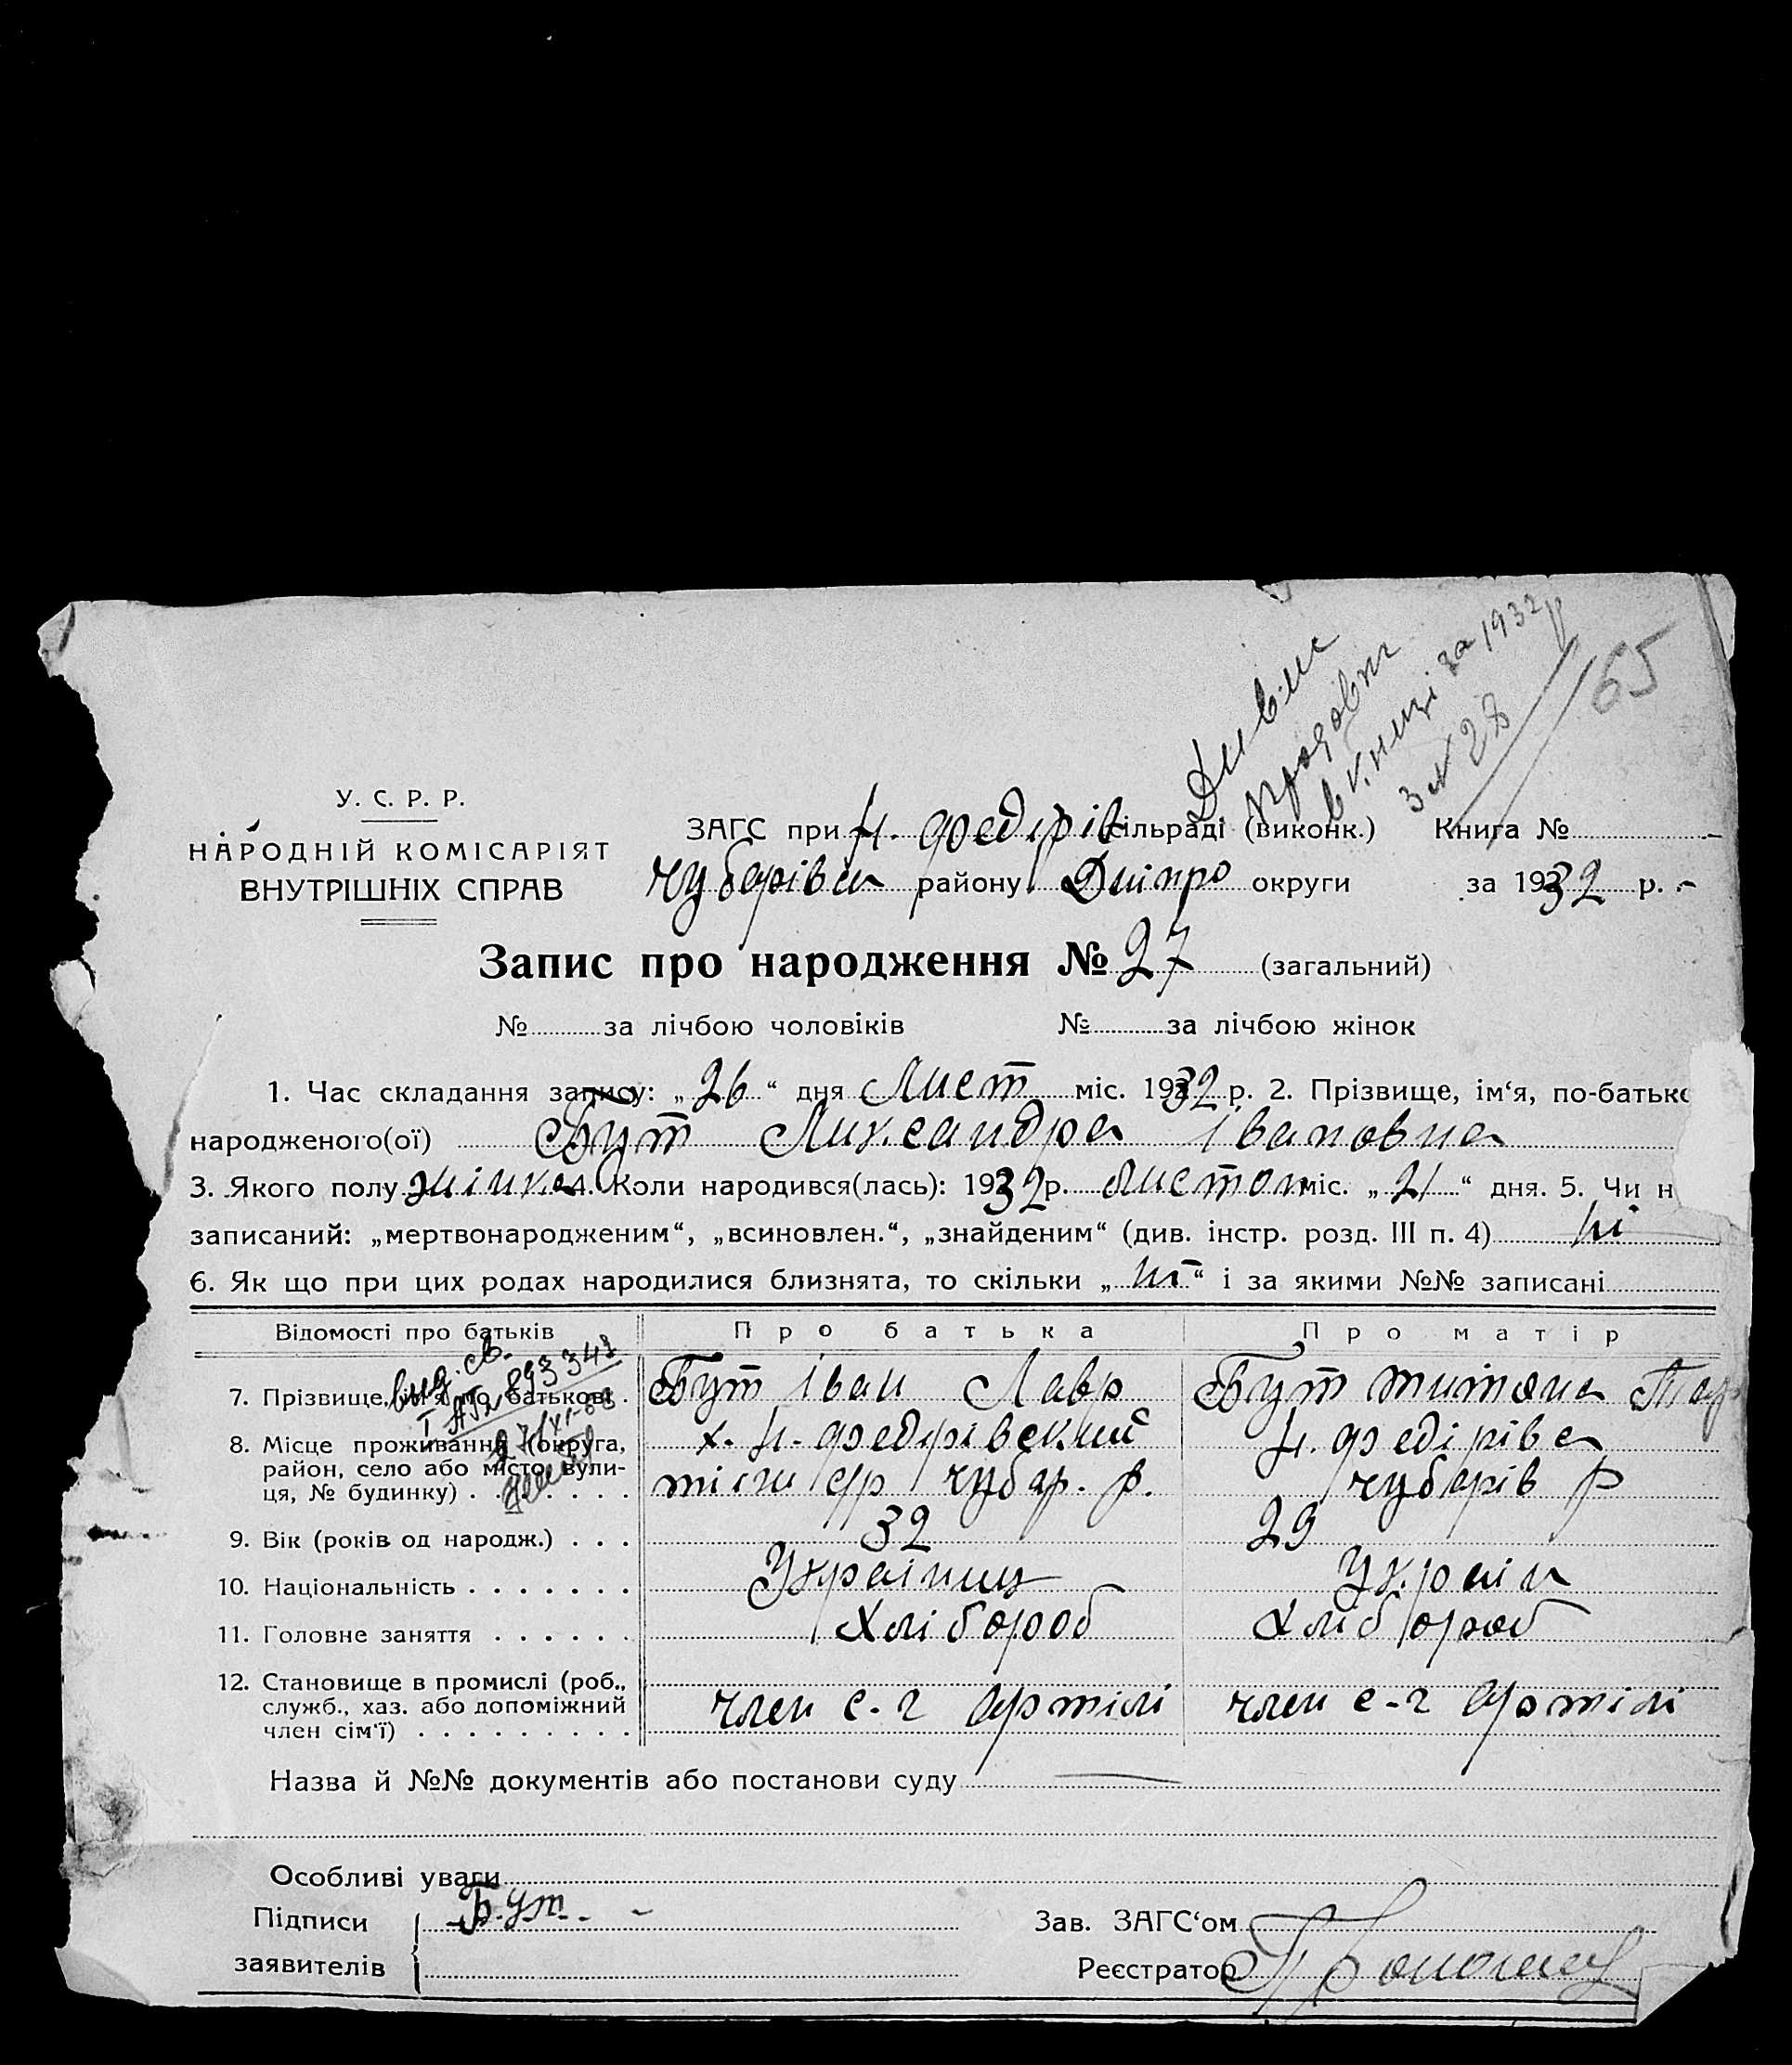 Дивись
в книзі за 1932 р
з № 28
65
У. С. Р. Р.
НАРОДНІЙ КОМІСАРІЯТ
ВНУТРІШНІХ СПРАВ
ЗАГС при Н. Федорів сільраді (виконк.) Книга №
Чубарівс району Дніпро округи за 1932 р.
Запис про народження № 27 (загальний)
№ за лічбою чоловіків № за лічбою жінок
1. Час складання запису: „26“ дня Лист міс. 1932 р. 2. Прізвище, ім‘я, по-батьк
народженого(ої) Бут Лиександра Івановна
3. Якого полу жінка 4. Коли народився(лась): 1932 р. Листоп міс. „21“ дня. 5. Чи н
записаний: „мертвонародженим“, „всиновлен.“, „знайденим“ (див. інстр. розд. III п. 4) ні
6. Як що при цих родах народилися близнята, то скільки „ні“ і за якими №№ записані
Відомості про батьків Про батька Про матір
вид. св.
7. Прізвище, ім‘я, по батькові Бут Іван Лавр Бут Титяна
8. Місце проживання (округа, х. Н-Федорівский Н. Федірівс
район, село або місто, вули-
ця, № будинку) чубар. р. чубарів р
9. Вік (років од народж.) 32 29
10. Національність Українц Україн
11. Головне заняття Хлібороб Хлібороб
12. Становище в промислі (роб.,
служб., хаз. або допоміжний член с-г артілі член с-г артілі
член сім‘ї)
Назва й №№ документів або постанови суду
Особливі уваги
Підписи Бут Зав. ЗАГС‘ом
заявителів Реєстратор